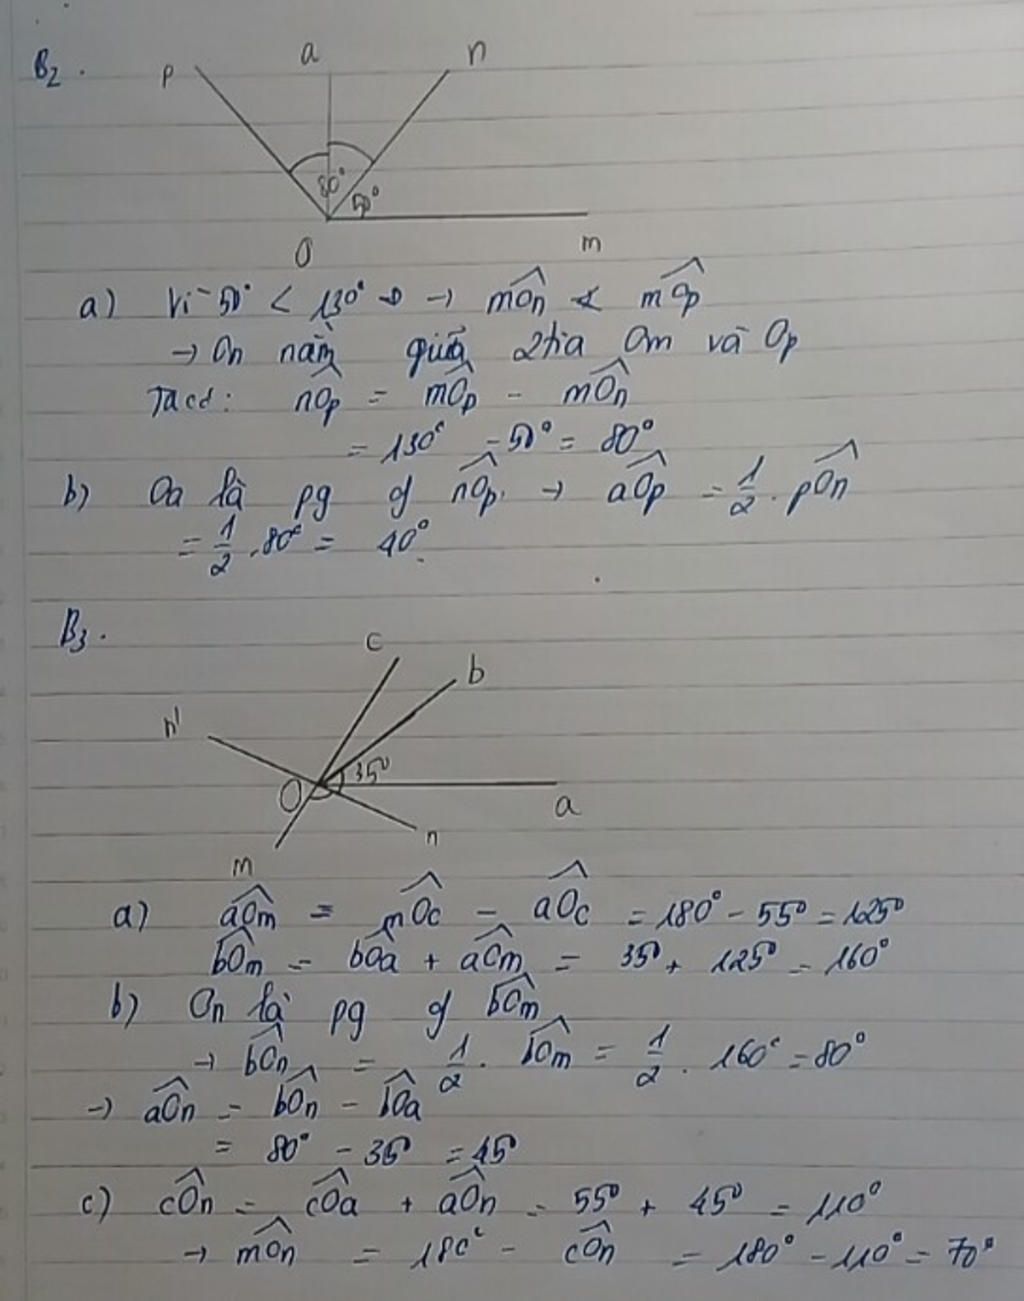 B2.
p a n
80° 50°
O m
a) Vì 50° < 130° → mOn < mOp
→ On nằm giữa 2 tia Om và Op
Ta có: nOp = mOp - mOn
= 130° - 50° = 80°
b) Oa là pg of nOp → aOp = 1/2 . pOn
= 1/2 . 80° = 40°.
B3.
c
b
n'
35°
O
a
n
m
a) aOm = mOc - aOc = 180° - 55° = 125°
bOm = bOa + aOm = 35° + 125° = 160°
b) On là pg of bOm
→ bOn = 1/2 . bOm = 1/2 . 160° = 80°
→ aOn = bOn - bOa
= 80° - 35° = 45°
c) cOn = cOa + aOn = 55° + 45° = 110°
→ mOn = 180° - cOn = 180° - 110° = 70°